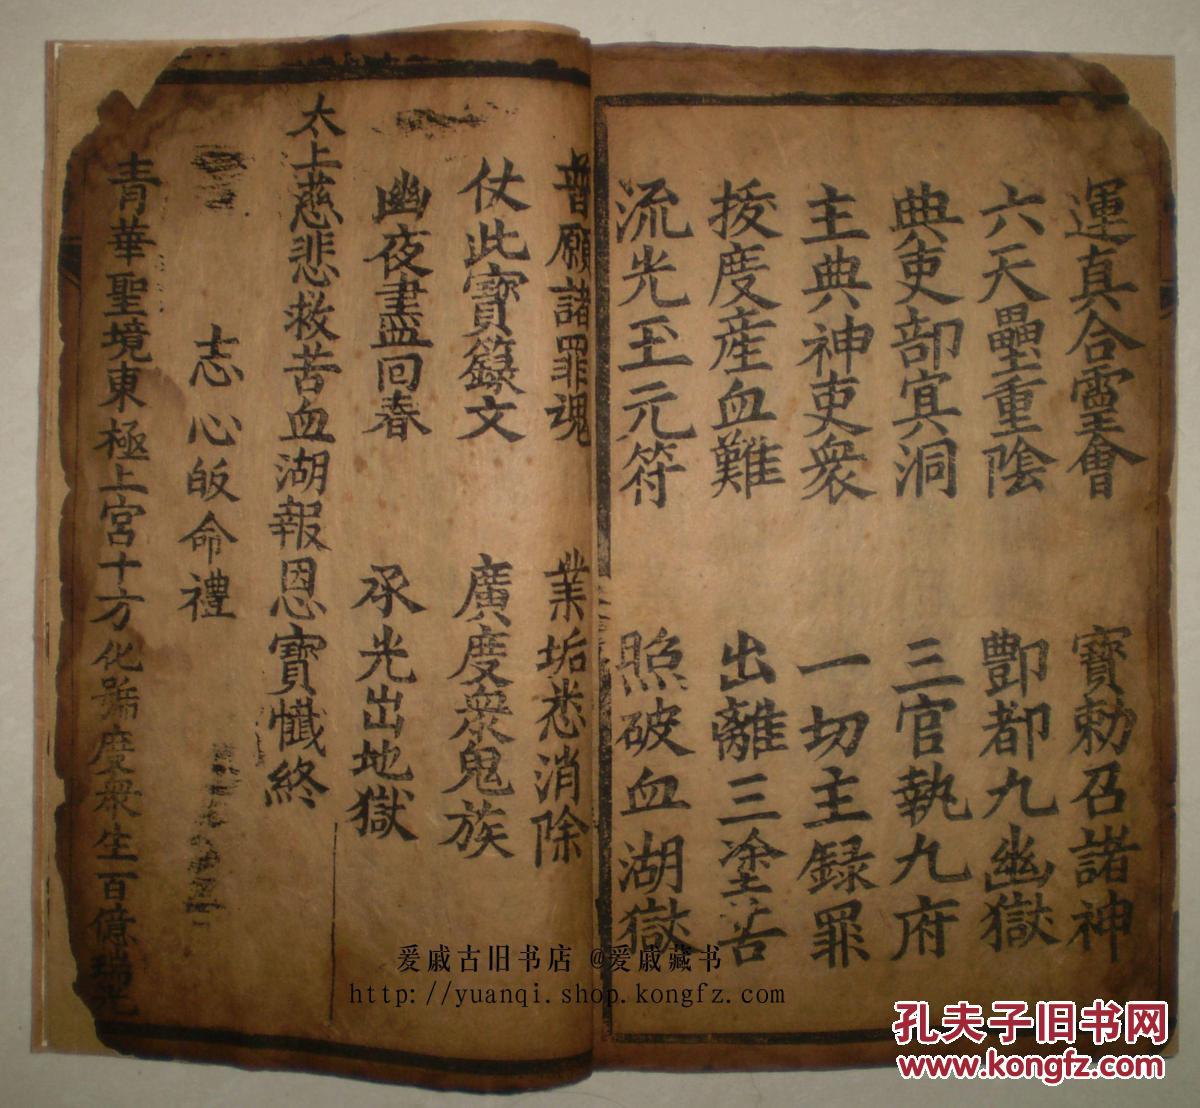 運真合靈會 寶勅召諸神
六天壘重陰 酆都九幽獄
典吏部冥洞 三官執九府
主典神吏衆 一切主録罪
拔度産血難 出離三塗苦
流光玉元符 照破血湖獄
普願諸罪魂 業垢悉消除
仗此寶籙文 廣度衆鬼族
幽夜盡回春 承光出地獄
太上慈悲救苦血湖報恩寶懺終
志心皈命禮
青華聖境東極上宮十方化號度衆生百億瑞光
爰戚古旧书店 @爰戚藏书
http://yuanqi.shop.kongfz.com
孔夫子旧书网
www.kongfz.com